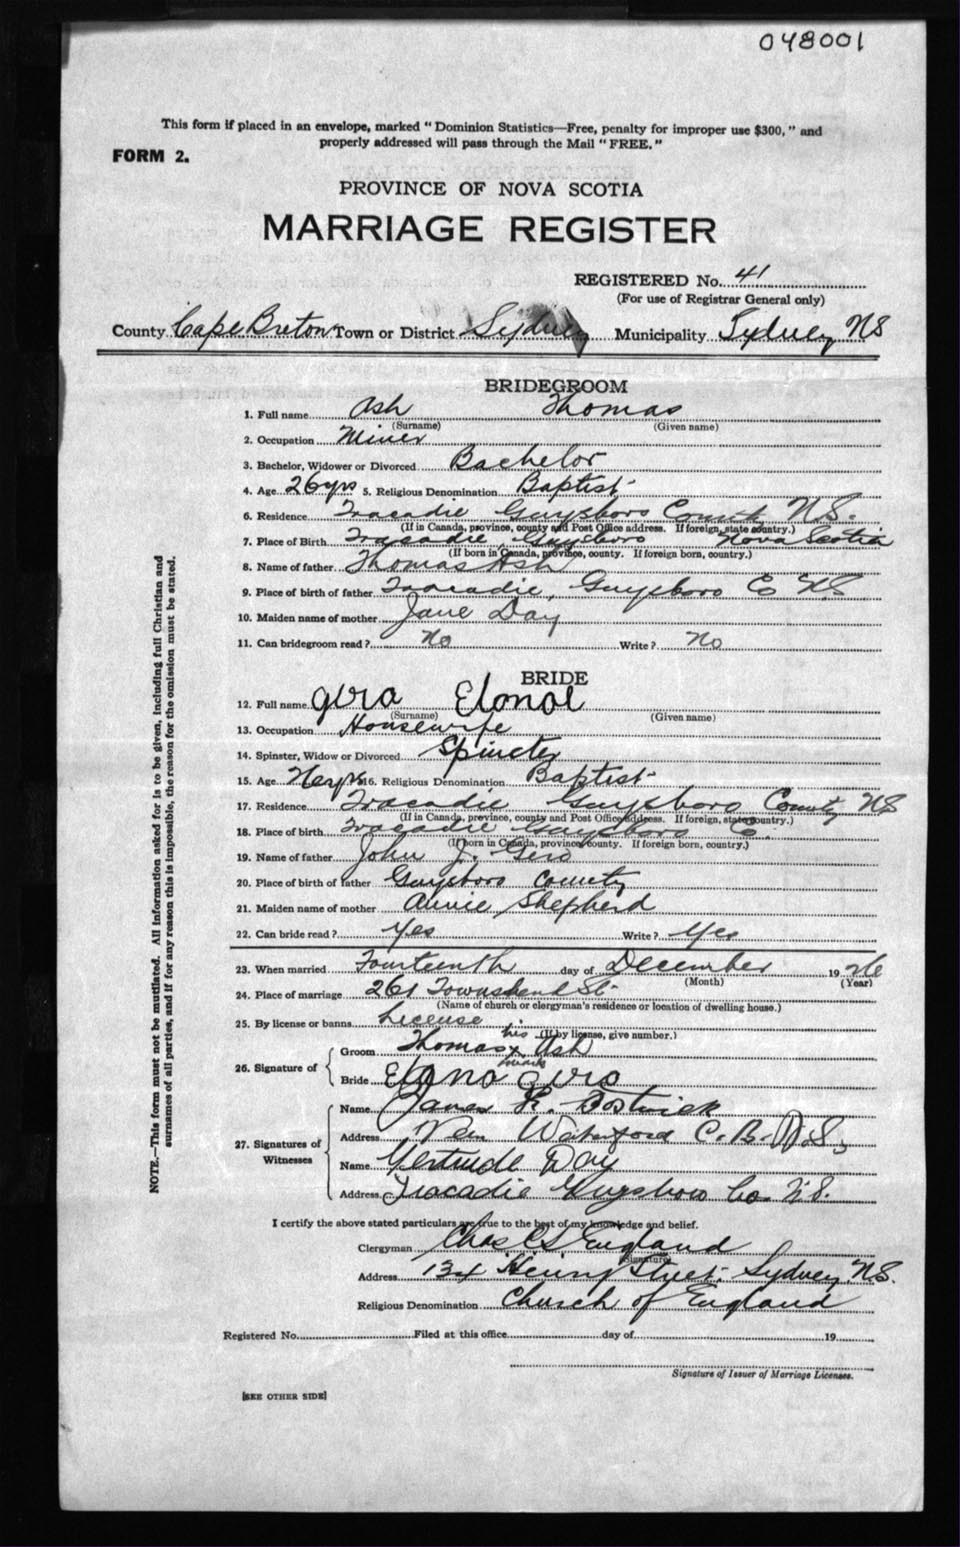 048001
This form if placed in an envelope, marked "Dominion Statistics—Free, penalty for improper use $300," and
properly addressed will pass through the Mail "FREE."
FORM 2.
PROVINCE OF NOVA SCOTIA
MARRIAGE REGISTER
REGISTERED No. 41
(For use of Registrar General only)
County Cape Breton Town or District Sydney Municipality Sydney NS
BRIDEGROOM
1. Full name Ash Thomas
(Surname) (Given name)
2. Occupation Miner
3. Bachelor, Widower or Divorced Bachelor
4. Age 26 yrs 5. Religious Denomination Baptist
6. Residence Tracadie Guysboro County N.S.
(If in Canada, province, county and Post Office address. If foreign, state country.)
7. Place of Birth Tracadie Guysboro Nova Scotia
(If born in Canada, province, county. If foreign born, country.)
8. Name of father Thomas Ash
9. Place of birth of father Tracadie, Guysboro Co NS
10. Maiden name of mother Jane Day
11. Can bridegroom read? No Write? No
BRIDE
12. Full name gero Elonol
(Surname) (Given name)
13. Occupation Housewife
14. Spinster, Widow or Divorced Spinster
15. Age 16. Religious Denomination Baptist
17. Residence Tracadie Guysboro County NS
(If in Canada, province, county and Post Office address. If foreign, state country.)
18. Place of birth Tracadie Guysboro Co.
(If born in Canada, province, county. If foreign born, country.)
19. Name of father John J. Gero
20. Place of birth of father Guysboro County
21. Maiden name of mother Annie Shepherd
22. Can bride read? Yes Write? Yes
23. When married Fourteenth day of December 1926
(Month) (Year)
24. Place of marriage 261 Townsend St.
(Name of church or clergyman's residence or location of dwelling house.)
25. By license or banns License
(If by license, give number.)
his
26. Signature of Groom Thomas x Ash
mark
Bride Elono gero
27. Signatures of Witnesses
Name James R. Bostwick
Address New Waterford C.B. N.S.
Name Gertrude Day
Address Tracadie Guysboro Co N.S.
I certify the above stated particulars are true to the best of my knowledge and belief.
Clergyman Chas C S England
(Signature)
Address 134 Street, Sydney NS.
Religious Denomination Church of England
Registered No. Filed at this office day of 19
Signature of Issuer of Marriage Licenses.
[SEE OTHER SIDE]
NOTE.—This form must not be mutilated. All information asked for is to be given, including full Christian and
surnames of all parties, and if for any reason this is impossible, the reason for the omission must be stated.